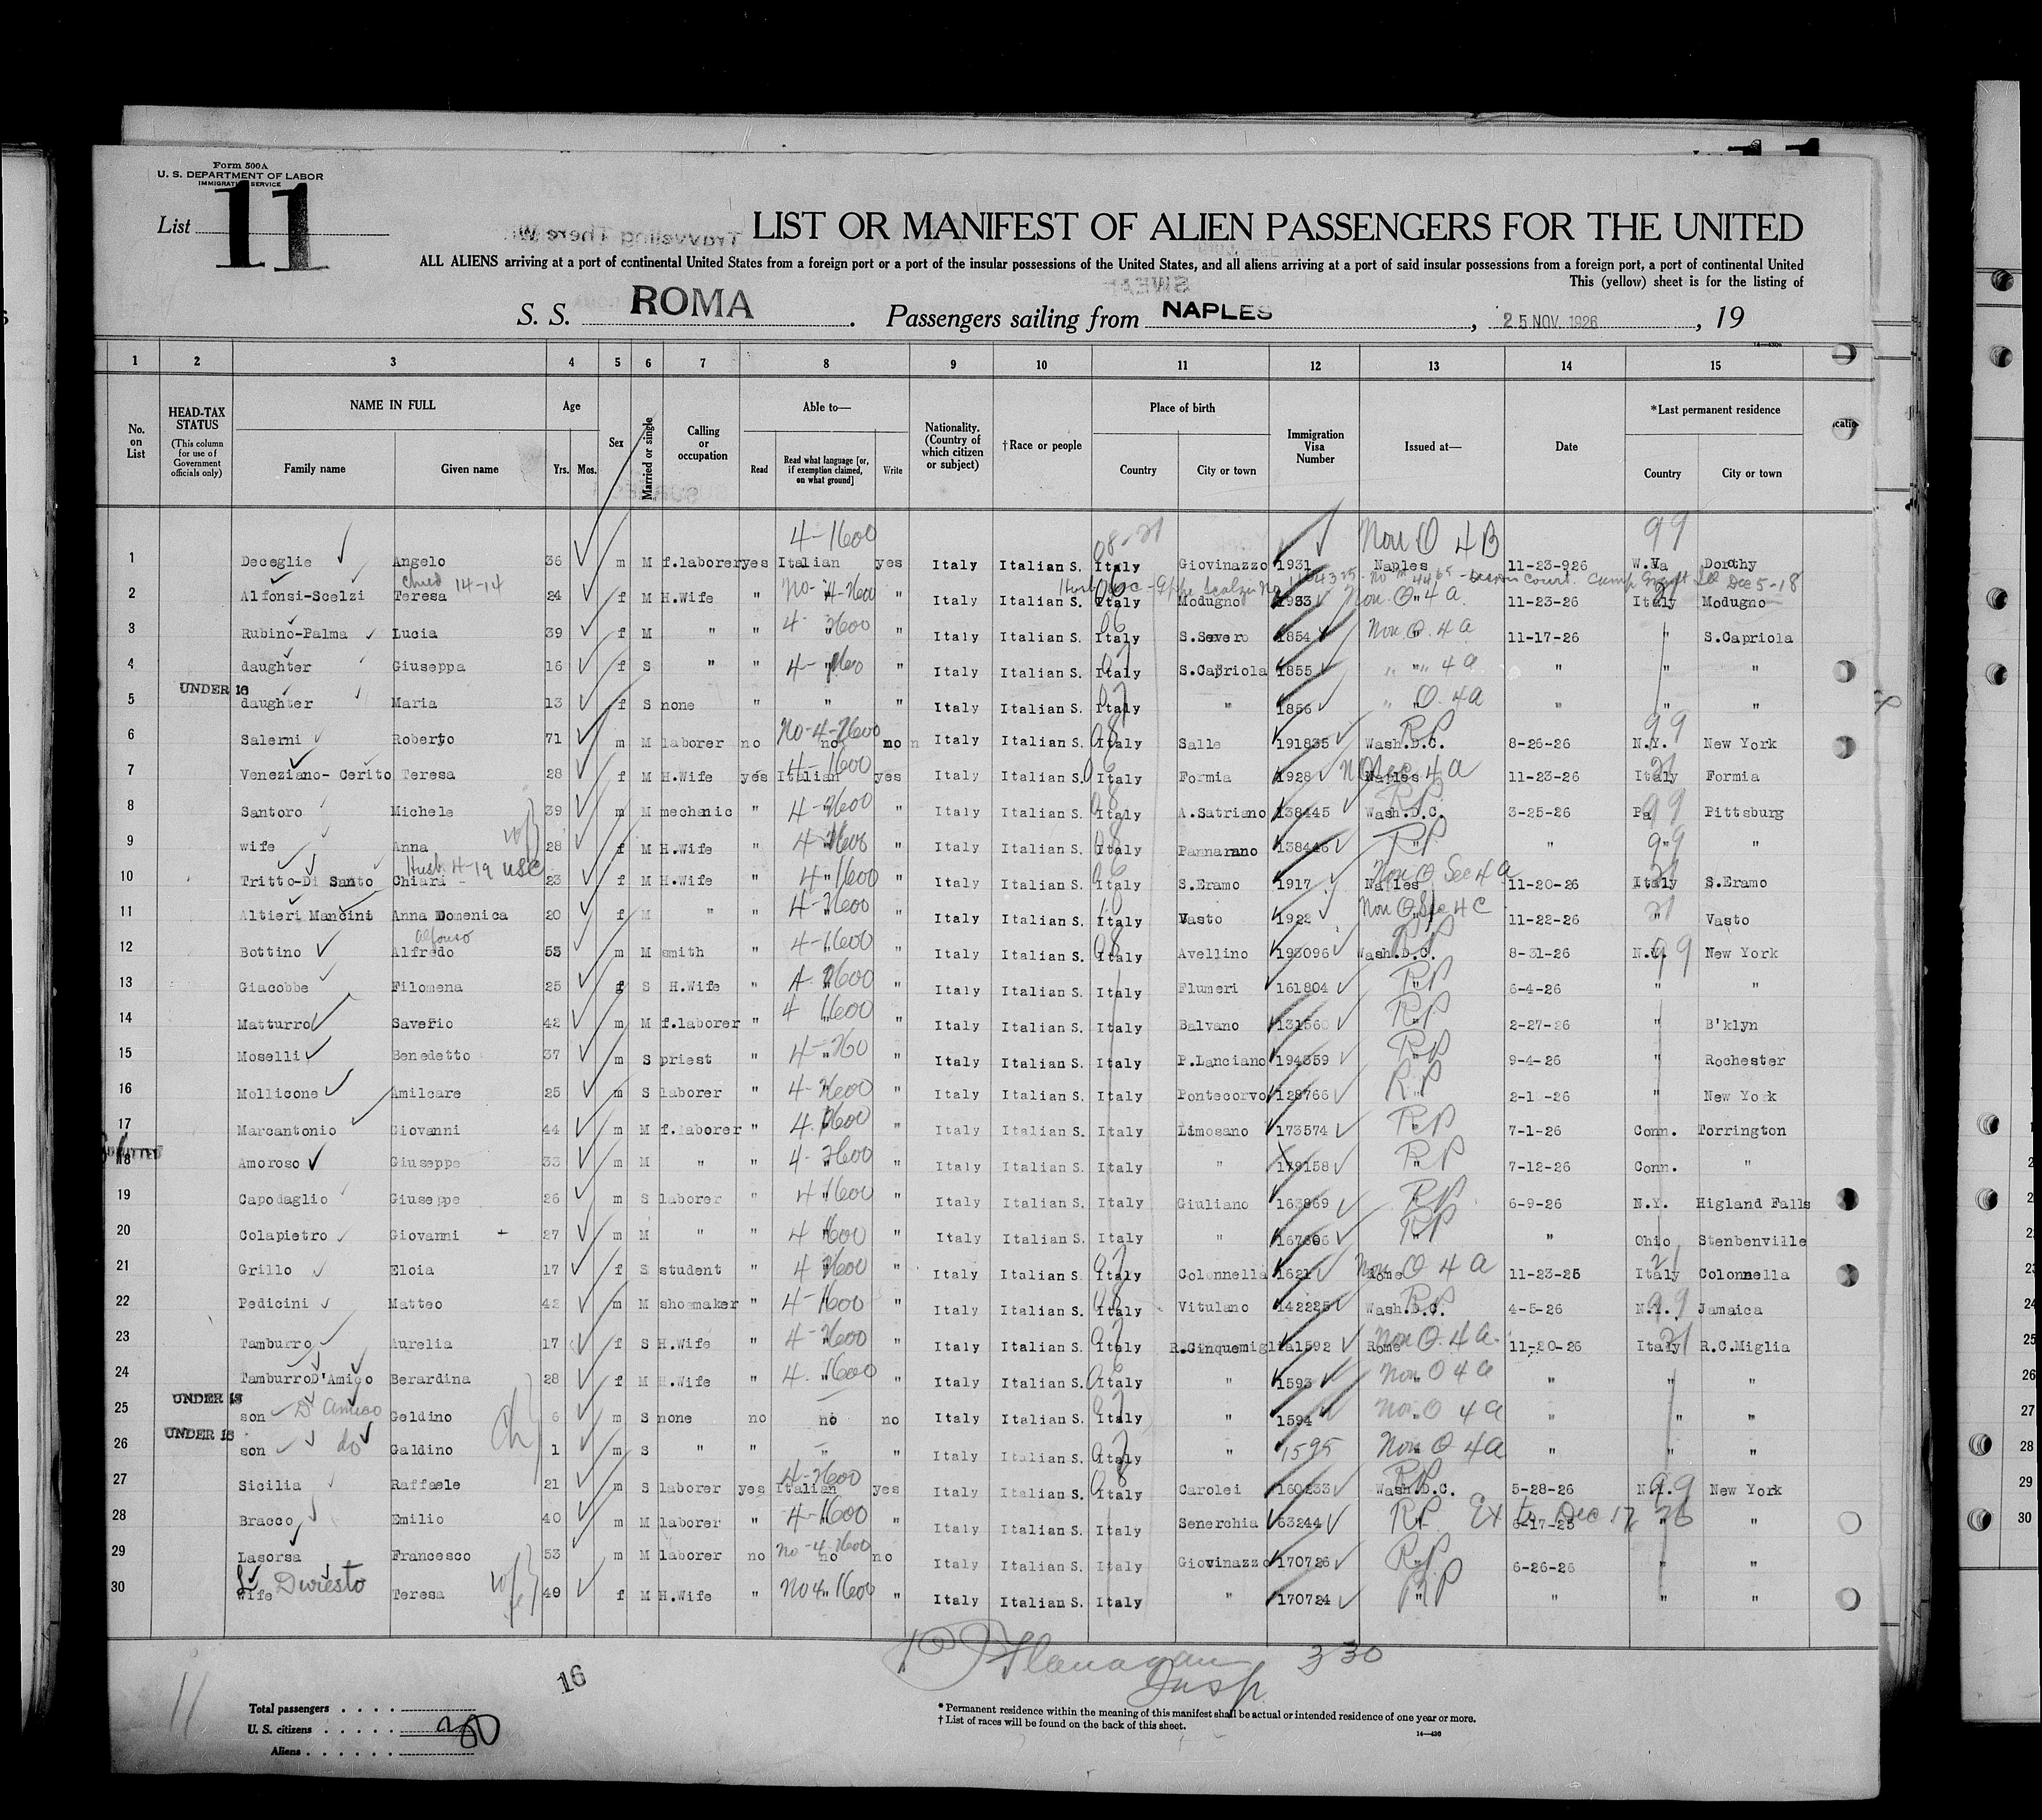 Form 500A
U. S. DEPARTMENT OF LABOR
IMMIGRATION SERVICE
List 11
LIST OR MANIFEST OF ALIEN PASSENGERS FOR THE UNITED
ALL ALIENS arriving at a port of continental United States from a foreign port or a port of the insular possessions of the United States, and all aliens arriving at a port of said insular possessions from a foreign port, a port of continental United
This (yellow) sheet is for the listing of
S. S. ROMA. Passengers sailing from NAPLES, 25 NOV. 1926, 19
1 2 3 4 5 6 7 8 9 10 11 12 13 14 15
No. on List
HEAD-TAX STATUS (This column for use of Government officials only)
NAME IN FULL Family name Given name
Age Yrs. Mos.
Sex
Married or single
Calling or occupation
Able to— Read Read what language [or, if exemption claimed, on what ground] Write
Nationality. (Country of which citizen or subject)
†Race or people
Place of birth Country City or town
Immigration Visa Number
Issued at—
Date
*Last permanent residence Country City or town
1 Deceglie Angelo 36 m M f.laborer yes Italian 4-1600 yes Italy Italian S. Italy Giovinazzo 1931 Naples Non Q 4B 11-23-926 W.Va 99 Dorothy
2 Alfonsi-Scelzi Teresa 14-14 24 f M H.Wife " " " Italy Italian S. Italy Modugno 1933 " Non Q 4a 11-23-26 Italy Modugno
3 Rubino-Palma Lucia 39 f M " " " " Italy Italian S. Italy S.Severo 1854 " Non Q 4a 11-17-26 " S.Capriola
4 daughter Giuseppa 16 f S " " " " Italy Italian S. Italy S.Capriola 1855 " 4a " " "
UNDER 16
5 daughter Maria 13 f S none " " " Italy Italian S. Italy " 1856 " Q 4a " " "
6 Salerni Roberto 71 m M laborer no no no Italy Italian S. Italy Salle 191835 Wash.D.C. RP 8-26-26 N.Y. 99 New York
7 Veneziano- Cerito Teresa 28 f M H.Wife yes Italian 4-1600 yes Italy Italian S. Italy Formia 1928 Naples 4a 11-23-26 Italy Formia
8 Santoro Michele 39 m M mechanic " " " Italy Italian S. Italy A.Satriano 138445 Wash.D.C. RP 3-25-26 Pa 99 Pittsburg
9 wife Anna 28 f M H.Wife " " " Italy Italian S. Italy Pannarano 138446 " RP " " 99 "
10 Tritto-Di Santo Chiara Husb 4-19 USC 23 f M H.Wife " " 4-1600 " Italy Italian S. Italy S.Eramo 1917 Naples Non Q Sec 4a 11-20-26 Italy S.Eramo
11 Altieri Mancini Anna Domenica 20 f M " " " " Italy Italian S. Italy Vasto 1922 " Non Q Sec 4C 11-22-26 " Vasto
12 Bottino Alfredo Alfonso 55 m M smith " 4-1600 " Italy Italian S. Italy Avellino 193096 Wash.D.C. RP 8-31-26 N.Y. 99 New York
13 Giacobbe Filomena 25 f S H.Wife " " " Italy Italian S. Italy Flumeri 161804 " RP 6-4-26 " "
14 Matturro Saverio 42 m M f.laborer " " " Italy Italian S. Italy Balvano 131560 " RP 2-27-26 " B'klyn
15 Moselli Benedetto 37 m S priest " " " Italy Italian S. Italy P.Lanciano 194359 " RP 9-4-26 " Rochester
16 Mollicone Amilcare 25 m S laborer " " " Italy Italian S. Italy Pontecorvo 128766 " RP " New York
17 Marcantonio Giovanni 44 m M f.laborer " " " Italy Italian S. Italy Limosano 173574 " RP 7-1-26 Conn. Torrington
18 Amoroso Giuseppe 33 m M " " " " Italy Italian S. Italy " 179158 " RP 7-12-26 Conn. "
19 Capodaglio Giuseppe 26 m S laborer " " " Italy Italian S. Italy Giuliano 163869 " RP 6-9-26 N.Y. Higland Falls
20 Colapietro Giovanni 27 m M " " " " Italy Italian S. Italy " 167606 " RP " Ohio Stenbenville
21 Grillo Eloia 17 f S student " " " Italy Italian S. Italy Colonnella 1621 Rome Non Q 4a 11-23-26 Italy Colonnella
22 Pedicini Matteo 42 m M shoemaker " 4-1600 " Italy Italian S. Italy Vitulano 142225 Wash.D.C. RP 4-5-26 N.Y. 99 Jamaica
23 Tamburro Aurelia 17 f S H.Wife " " " Italy Italian S. Italy R.Cinquemiglia 1592 Rome Non Q 4a 11-20-26 Italy R.C.Miglia
24 Tamburro D'Amico Berardina 28 f M H.Wife " " " Italy Italian S. Italy " 1593 " Non Q 4a " " "
UNDER 16
25 son D'Amico Geldino 6 m S none no no no Italy Italian S. Italy " 1594 " Non Q 4a " " "
UNDER 16
26 son do Galdino 1 m S " " " " Italy Italian S. Italy " 1595 " Non Q 4a " " "
27 Sicilia Raffaele 21 m S laborer yes Italian yes Italy Italian S. Italy Carolei 160233 Wash.D.C. RP 5-28-26 N.Y. 99 New York
28 Bracco Emilio 40 m M laborer " 4-1600 " Italy Italian S. Italy Senerchia 63244 " RP Ex to Dec 17 26 6-17-25 " "
29 Lasorsa Francesco 53 m M laborer no no no Italy Italian S. Italy Giovinazzo 170726 " RP 6-26-26 " "
30 wife Teresa 49 f M H.Wife " " " Italy Italian S. Italy " 170724 " RP " " "
Flanagan 330
Insp.
16
11
Total passengers
U. S. citizens
30
Aliens
* Permanent residence within the meaning of this manifest shall be actual or intended residence of one year or more.
† List of races will be found on the back of this sheet.
14—430